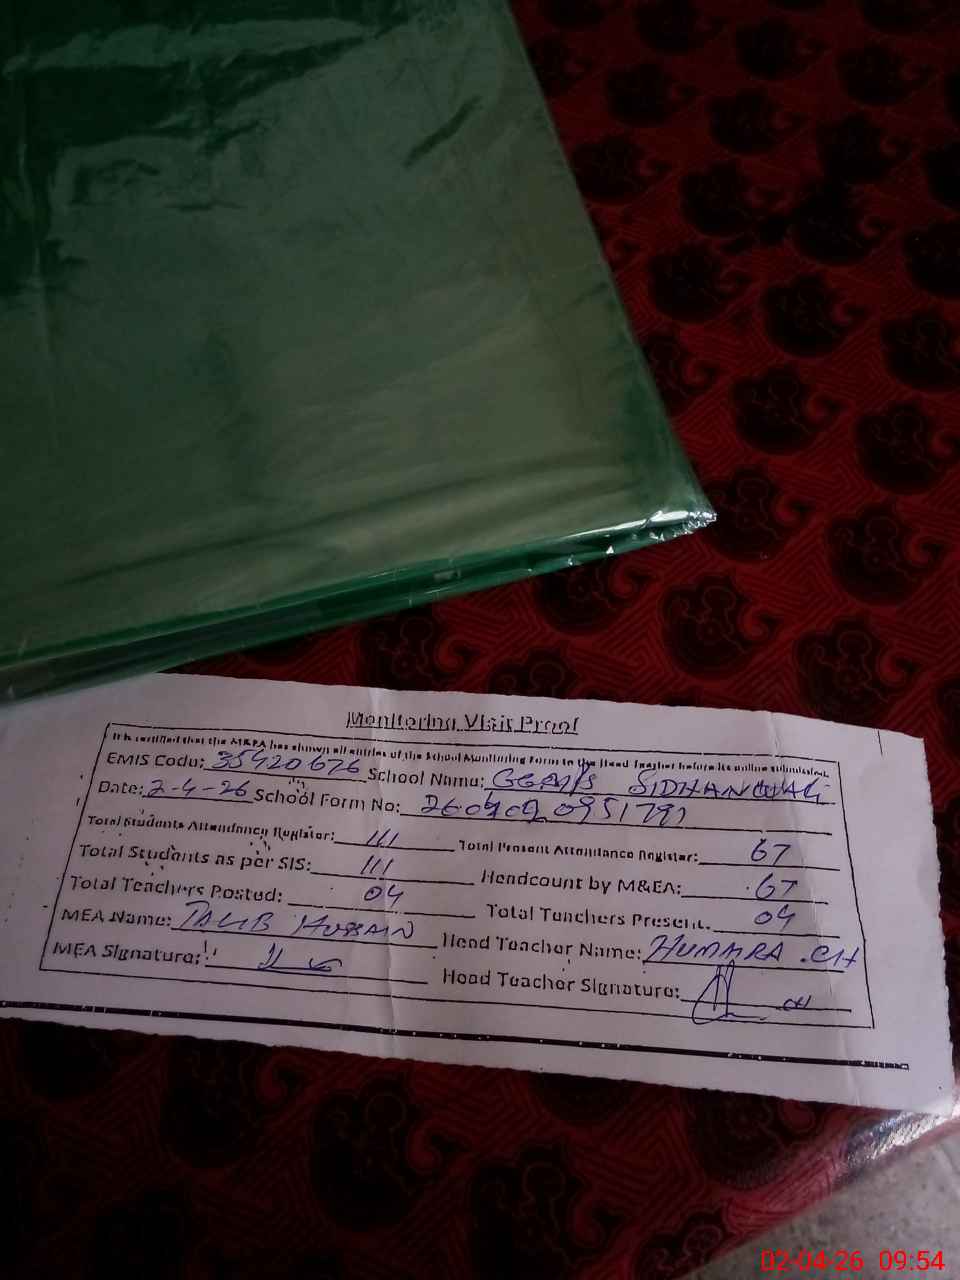 Monitoring Visit Proof
It is certified that the M&EA has shown all entries of the School Monitoring Form to the Head Teacher before its online submission.
EMIS Code: 35420676 School Name: SIDHANWALI
Date: 2-4-26 School Form No: 2604020951791
Total Students Attendance Register: 111 Total Present Attendance Register: 67
Total Students as per SIS: 111 Headcount by M&EA: 67
Total Teachers Posted: 04 Total Teachers Present. 04
MEA Name: TALIB HUSSAIN Head Teacher Name: HUMMRA .CH
MEA Signature: Head Teacher Signature: CH
02-04-26 09:54